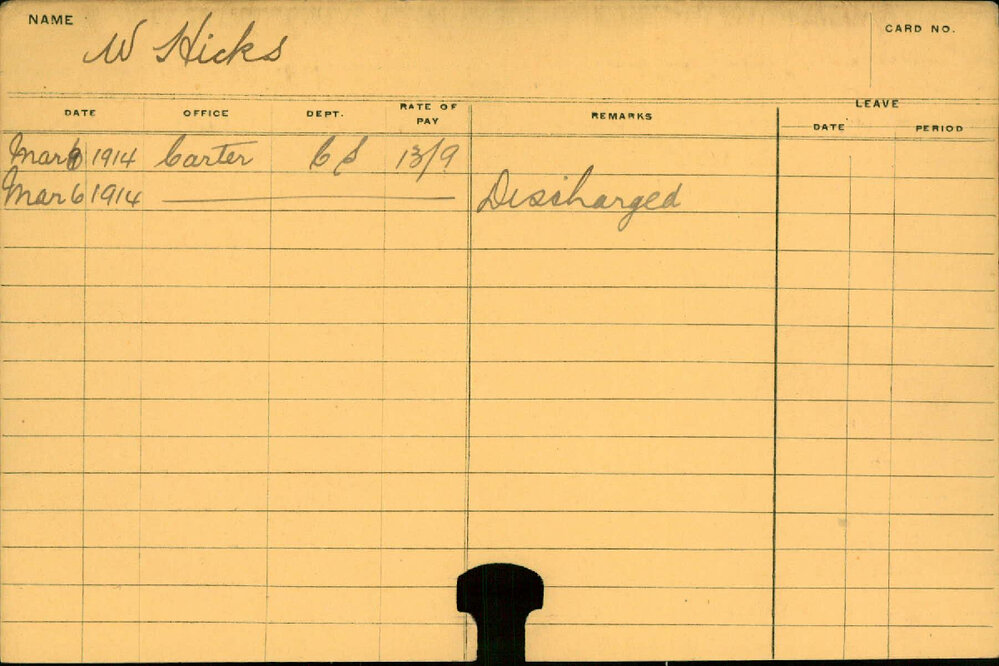 NAME
W Hicks
CARD NO.
DATE OFFICE DEPT. RATE OF PAY REMARKS LEAVE
DATE PERIOD
Mar 1914 Carter CS 13/9
Mar 6 1914 Discharged